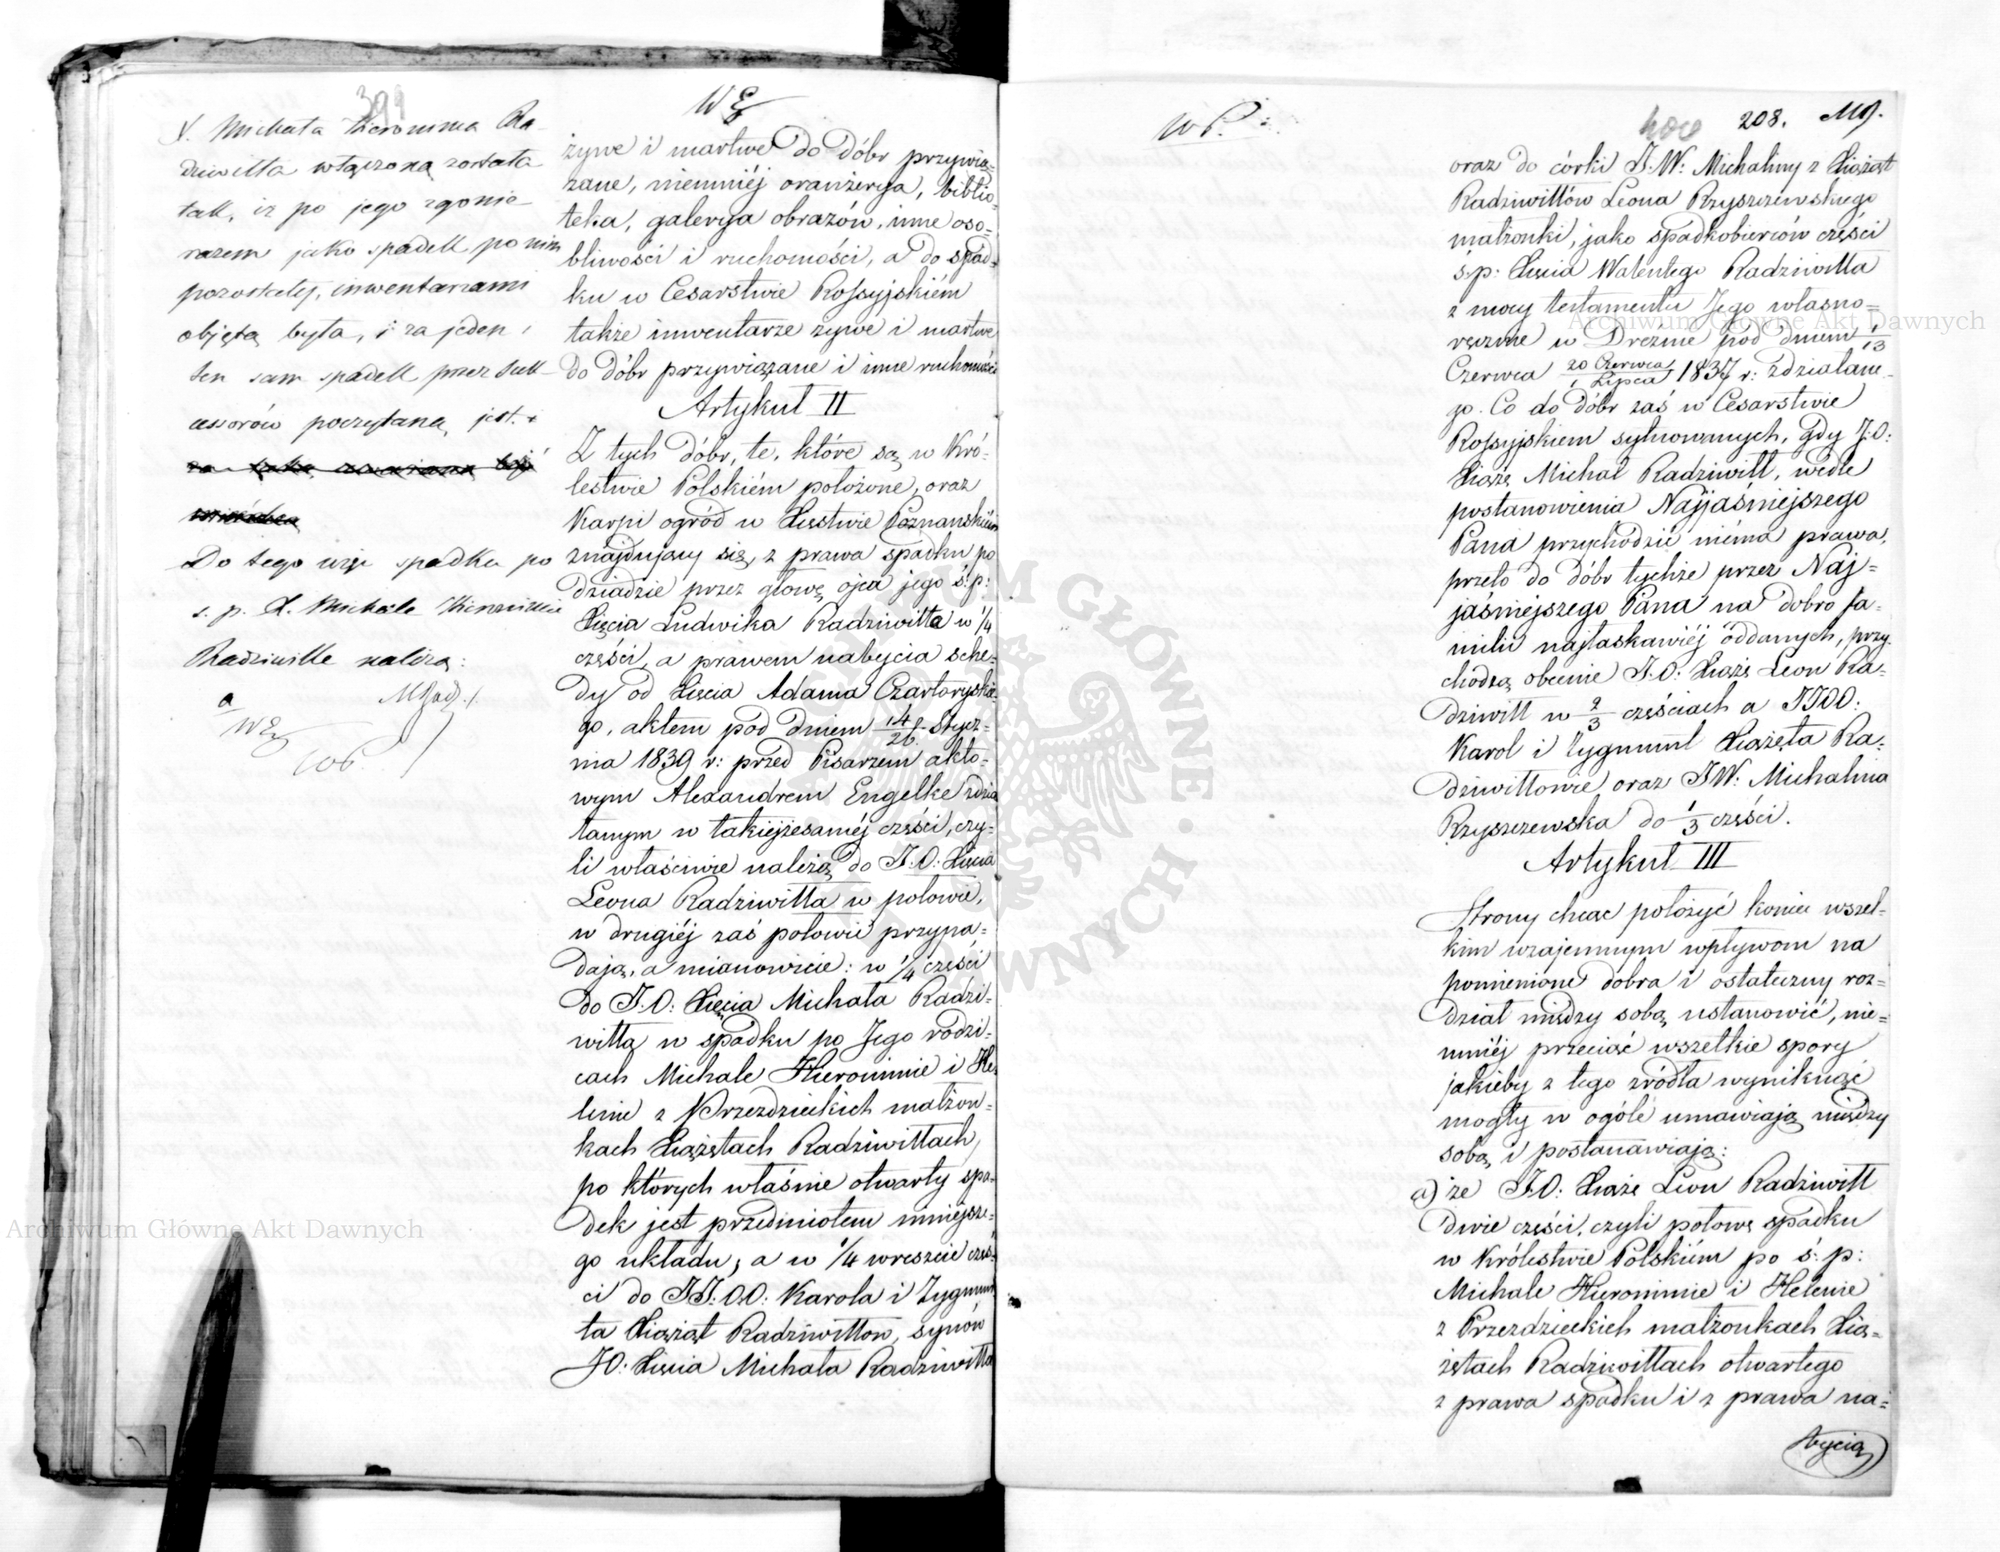 399
X. Michała Hieronima Ra-
dziwiłła włączoną została
tak, iż po jego zgonie
razem jako spadek po nim
pozostały, inwentarzami
objętą była, i za jeden i
ten sam spadek przez suk-
cessorów poczytaną jest.
Do tego więc spadku po
s. p. X. Michale Hieronimie
Radziwille należą:
WP.
żywe i martwe do dóbr przywią-
zane, niemniéj oranżerya, biblio-
teka, galerya obrazów, inne oso-
bliwości i ruchomości, a do spad-
ku w Cesarstwie Rossyjskiém
także inwentarze żywe i martwe
do dóbr przywiązane i inne ruchomości
Artykuł II
Z tych dóbr, te, które są w Kró-
lestwie Polskiém położone, oraz
Karpi ogród w Xięstwie Poznańskiém
znajdujący się, z prawa spadku po
dziadzie przez głowę ojca jego ś. p:
Xięcia Ludwika Radziwiłła w 1/4
części, a prawem nabycia sche-
dy od Xięcia Adama Czartoryskie-
go, aktem pod dniem 14/26 Stycz-
nia 1839 r: przed Pisarzem akto-
wym Alexandrem Engelke zdzia
łanym w takiejżesaméj części, czy-
li właściwie należą do J.O. Xięcia
Leona Radziwiłła w połowie,
w drugiéj zaś połowie przypa-
dają, a mianowicie: w 1/4 części
do J.O: Xięcia Michała Radzi-
wiłła w spadku po Jego rodzi-
cach Michale Hieronimie i He-
lenie z Przezdzieckich małżon-
kach Xiążętach Radziwiłłach,
po których właśnie otwarty spa-
dek jest przedmiotem niniejsze-
go układu; a w 1/4 wreszcie częś-
ci do JJ.OO: Karola i Zygmun
ta Xiążąt Radziwiłłów, synów
JO: Xięcia Michała Radziwiłła
WP.
400 208. MR.
oraz do córki J.W: Michaliny z Xiążąt
Radziwiłłów Leona Rzyszczewskiego
małżonki, jako spadkobierców części
ś. p: Xięcia Walentego Radziwiłła
z mocy testamentu Jego własno-
ręcznie w Dreznie pod dniem 1/13
Czerwca 20 Czerwca/1 Lipca 1837 r: zdziałane-
go. Co do dóbr zaś w Cesarstwie
Rossyjskiem sytuowanych, gdy J.O:
Xiążę Michał Radziwiłł, wedle
postanowienia Najjaśniejszego
Pana przychodzić niéma prawa,
przeto do dóbr tychże przez Naj-
jaśniejszego Pana na dobro fa-
milii najłaskawiéj oddanych, przy
chodzą obecnie J.O: Xiążę Leon Ra-
dziwiłł w 2/3 częściach a JJOO:
Karol i Zygmunt Xiążęta Ra-
dziwiłłowie, oraz JW: Michalina
Rzyszczewska do 1/3 części.
Artykuł III
Strony chcąc położyć koniec wszel-
kim wzajemnym wpływom na
pomienione dobra i ostateczny roz-
dział między sobą ustanowić, nie-
mniéj przeciąć wszelkie spory
jakieby z tego źródła wyniknąć
mogły w ogóle umawiają między
sobą i postanawiają:
a) że J.O: Xiąże Leon Radziwiłł
dwie części, czyli połowę spadku
w Królestwie Polskiém po ś: p:
Michale Hieronimie i Helenie
z Przezdzieckich małżonkach Xią-
żętach Radziwiłłach otwartego
z prawa spadku i z prawa na-
bycia
Archiwum Główne Akt Dawnych
Archiwum Główne Akt Dawnych